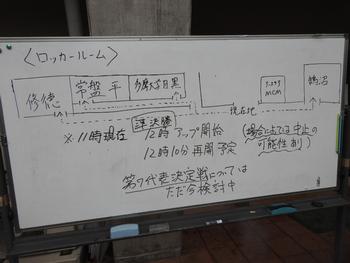 〈ロッカールーム〉
修徳
常盤平
多摩大目黒
MCM
鵠沼
現在地
準決勝
※11時現在
12時アップ開始
12時10分再開予定
(場合によっては中止の
可能性あり)
第9代表決定戦については
ただ今検討中